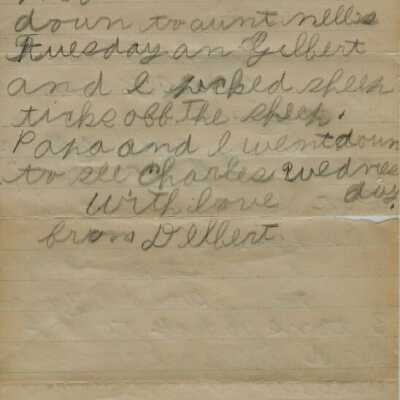 down to aunt nellis
Tuesday an Gilbert
and I picked sheep
ticks off The sheep.
Papa and I went down
to see Charles wednes
day.
With love
from Delbert